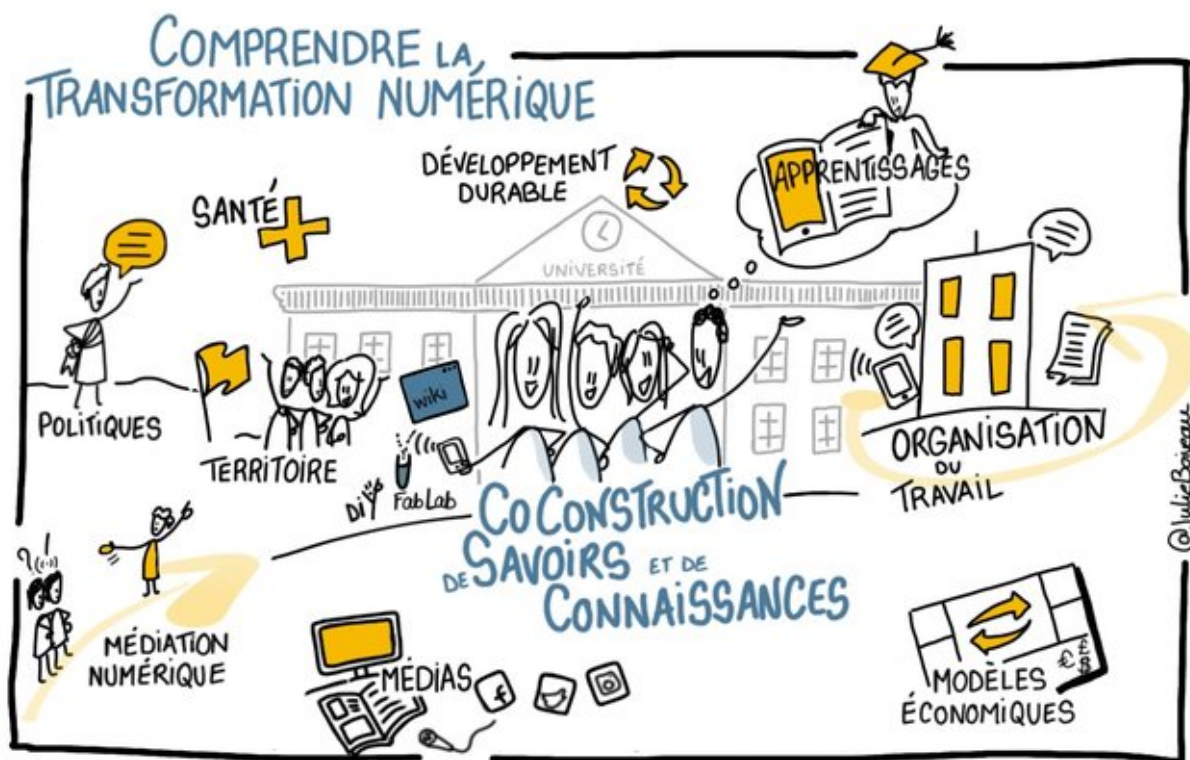 COMPRENDRE LA
TRANSFORMATION NUMÉRIQUE
DÉVELOPPEMENT
DURABLE
APPRENTISSAGES
SANTÉ
UNIVERSITÉ
POLITIQUES
TERRITOIRE
wiki
DiY
FabLab
ORGANISATION
DU
TRAVAIL
COCONSTRUCTION
DE SAVOIRS ET DE
CONNAISSANCES
? !
MÉDIATION
NUMÉRIQUE
MÉDIAS
f
€ £
$
MODÈLES
ÉCONOMIQUES